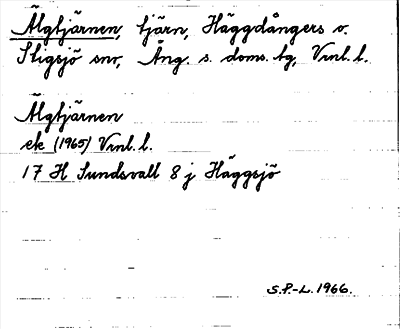 Älgtjärnen, tjärn, Häggdångers o.
Stigsjö snr, Ång. s. doms. tg, Vrnl. l.
Älgtjärnen
ek (1965) Vrnl. l.
17 H Sundsvall 8 j Häggsjö
S.P.-L. 1966.